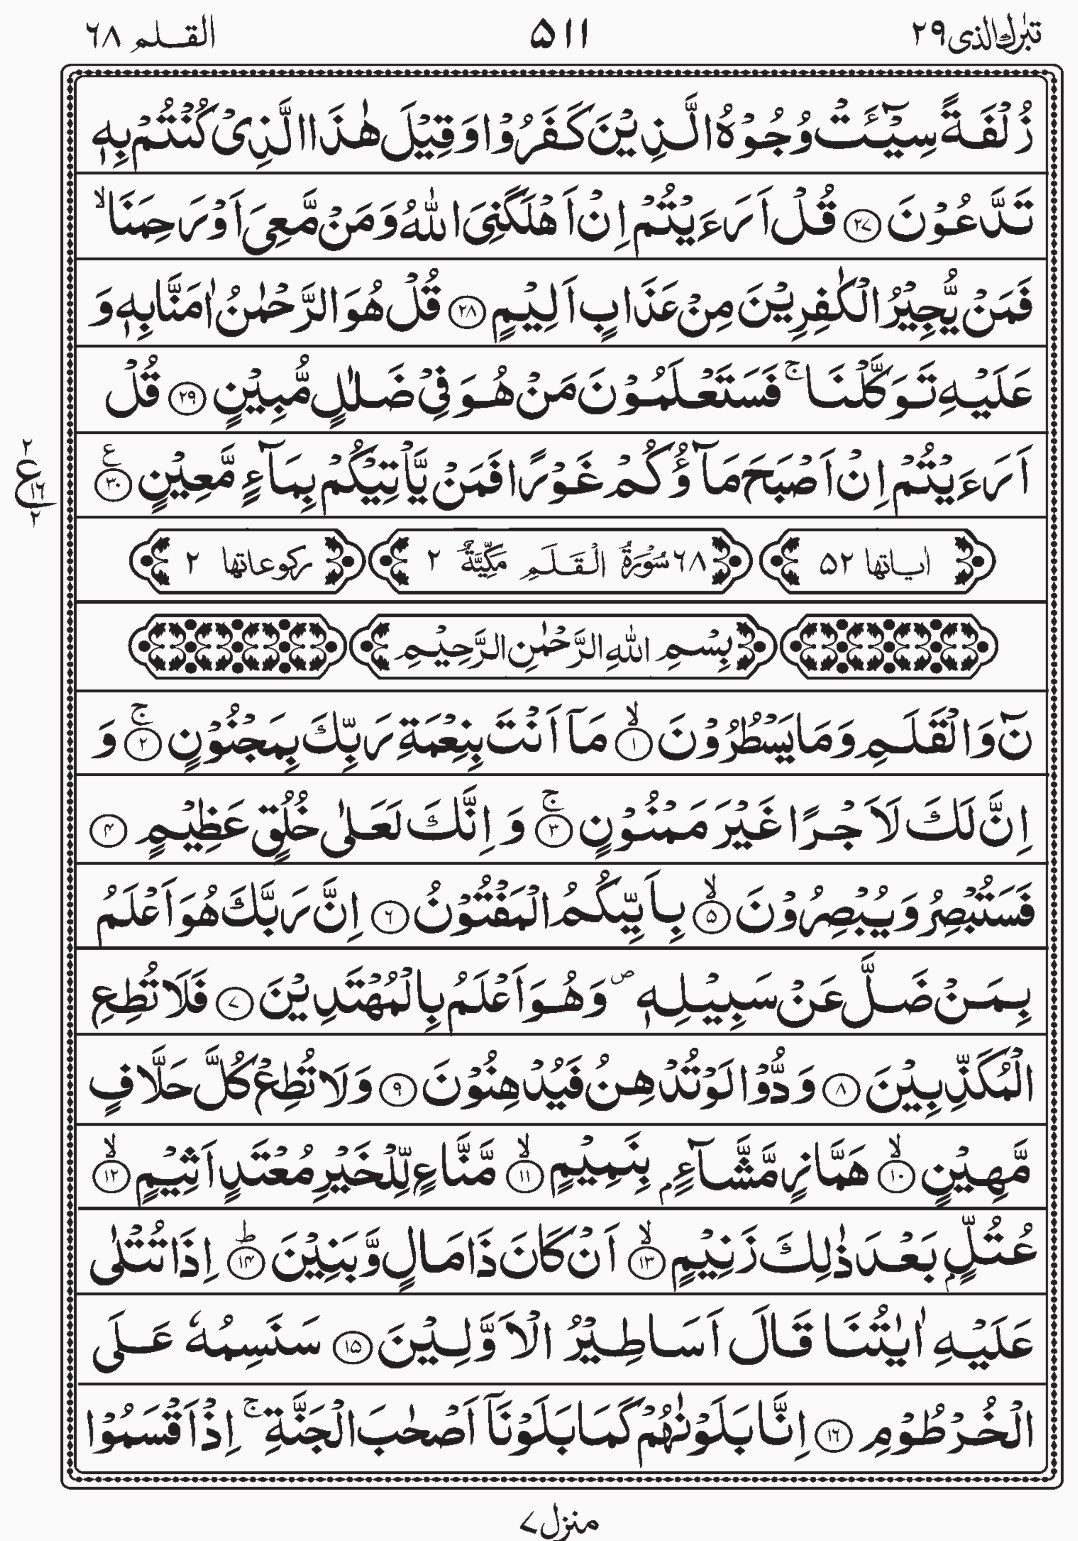 تبٰرك الذی ٢٩ ٥١١ القلم ٦٨
زُلْفَةً سِیْٓئَتْ وُجُوْهُ الَّذِیْنَ كَفَرُوْا وَ قِیْلَ هٰذَا الَّذِیْ كُنْتُمْ بِهٖ
تَدَّعُوْنَ ﴿٢٧﴾ قُلْ اَرَءَیْتُمْ اِنْ اَهْلَكَنِیَ اللّٰهُ وَ مَنْ مَّعِیَ اَوْ رَحِمَنَا ۙ
فَمَنْ یُّجِیْرُ الْكٰفِرِیْنَ مِنْ عَذَابٍ اَلِیْمٍ ﴿٢٨﴾ قُلْ هُوَ الرَّحْمٰنُ اٰمَنَّا بِهٖ وَ
عَلَیْهِ تَوَكَّلْنَا ۚ فَسَتَعْلَمُوْنَ مَنْ هُوَ فِیْ ضَلٰلٍ مُّبِیْنٍ ﴿٢٩﴾ قُلْ
اَرَءَیْتُمْ اِنْ اَصْبَحَ مَآؤُكُمْ غَوْرًا فَمَنْ یَّاْتِیْكُمْ بِمَآءٍ مَّعِیْنٍ ﴿٣٠﴾ ع
٢
ع ١٦
٢
اٰیاتها ٥٢ ٦٨ سُوْرَةُ الْقَلَمِ مَكِّیَّةٌ ٢ رکوعاتها ٢
بِسْمِ اللّٰهِ الرَّحْمٰنِ الرَّحِیْمِ
نٓ وَ الْقَلَمِ وَ مَا یَسْطُرُوْنَ ۙ﴿١﴾ مَاۤ اَنْتَ بِنِعْمَةِ رَبِّكَ بِمَجْنُوْنٍ ۚ﴿٢﴾ وَ
اِنَّ لَكَ لَاَجْرًا غَیْرَ مَمْنُوْنٍ ۚ﴿٣﴾ وَ اِنَّكَ لَعَلٰی خُلُقٍ عَظِیْمٍ ﴿٤﴾
فَسَتُبْصِرُ وَ یُبْصِرُوْنَ ۙ﴿٥﴾ بِاَىیِّكُمُ الْمَفْتُوْنُ ﴿٦﴾ اِنَّ رَبَّكَ هُوَ اَعْلَمُ
بِمَنْ ضَلَّ عَنْ سَبِیْلِهٖ ۪ وَ هُوَ اَعْلَمُ بِالْمُهْتَدِیْنَ ﴿٧﴾ فَلَا تُطِعِ
الْمُكَذِّبِیْنَ ﴿٨﴾ وَدُّوْا لَوْ تُدْهِنُ فَیُدْهِنُوْنَ ﴿٩﴾ وَ لَا تُطِعْ كُلَّ حَلَّافٍ
مَّهِیْنٍ ۙ﴿١٠﴾ هَمَّازٍ مَّشَّآءٍۭ بِنَمِیْمٍ ۙ﴿١١﴾ مَّنَّاعٍ لِّلْخَیْرِ مُعْتَدٍ اَثِیْمٍ ۙ﴿١٢﴾
عُتُلٍّۭ بَعْدَ ذٰلِكَ زَنِیْمٍ ۙ﴿١٣﴾ اَنْ كَانَ ذَا مَالٍ وَّ بَنِیْنَ ؕ﴿١٤﴾ اِذَا تُتْلٰی
عَلَیْهِ اٰیٰتُنَا قَالَ اَسَاطِیْرُ الْاَوَّلِیْنَ ﴿١٥﴾ سَنَسِمُهٗ عَلَی
الْخُرْطُوْمِ ﴿١٦﴾ اِنَّا بَلَوْنٰهُمْ كَمَا بَلَوْنَاۤ اَصْحٰبَ الْجَنَّةِ ۚ اِذْ اَقْسَمُوْا
منزل ٧